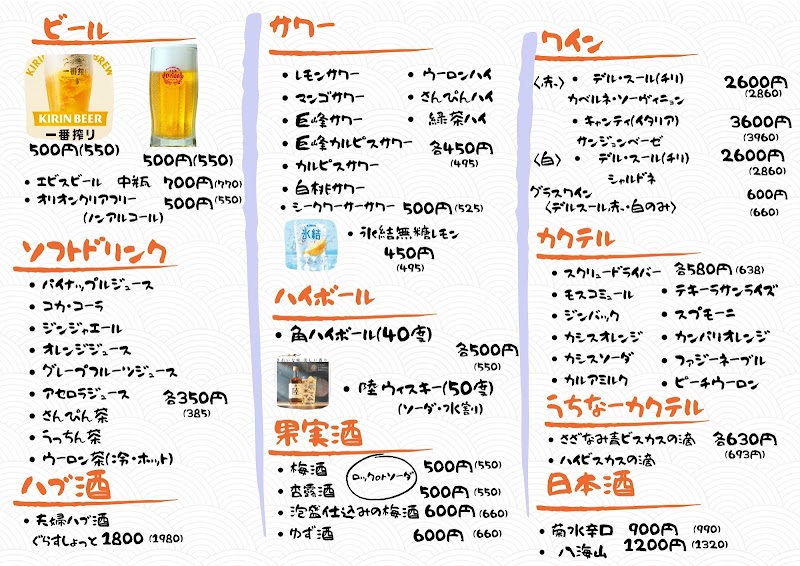 ビール
KIRIN BEER
一番搾り
500円(550)
500円(550)
・エビスビール 中瓶 700円(770)
・オリオンクリアフリー 500円(550)
(ノンアルコール)
ソフトドリンク
・パイナップルジュース
・コカ・コーラ
・ジンジャエール
・オレンジジュース
・グレープフルーツジュース
・アセロラジュース 各350円
・さんぴん茶 (385)
・うっちん茶
・ウーロン茶(冷・ホット)
ハブ酒
・夫婦ハブ酒
ぐらすしょっと 1800 (1980)
サワー
・レモンサワー ・ウーロンハイ
・マンゴサワー ・さんぴんハイ
・巨峰サワー ・緑茶ハイ
・巨峰カルピスサワー 各450円
・カルピスサワー (495)
・白桃サワー
・シークワーサーサワー 500円(525)
氷結
・氷結無糖レモン
450円
(495)
ハイボール
・角ハイボール(40度)
各500円
(550)
・陸ウィスキー(50度)
(ソーダ・水割り)
果実酒
・梅酒 ロックorソーダ 500円(550)
・杏露酒 500円(550)
・泡盛仕込みの梅酒 600円(660)
・ゆず酒 600円(660)
ワイン
〈赤〉・デル・スール(チリ) 2600円
カベルネ・ソーヴィニョン (2860)
・キャンティ(イタリア) 3600円
サンジョンベーゼ (3960)
〈白〉・デル・スール(チリ) 2600円
シャルドネ (2860)
グラスワイン 600円
〈デルスール赤・白のみ〉 (660)
カクテル
・スクリュードライバー 各580円(638)
・モスコミュール ・テキーラサンライズ
・ジンバック ・スプモーニ
・カシスオレンジ ・カンパリオレンジ
・カシスソーダ ・ファジーネーブル
・カルアミルク ・ピーチウーロン
うちなーカクテル
・さざなみ青ビスカスの滴 各630円
・ハイビスカスの滴 (693円)
日本酒
・菊水辛口 900円 (990)
・八海山 1200円(1320)